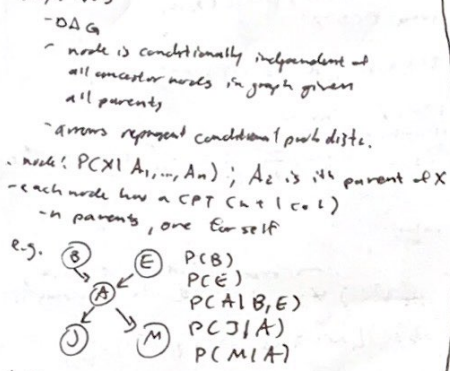 - DAG
- node is conditionally independent of
all ancestor nodes in graph given
all parents
- arrows represent conditional prob dists.
. node: P(X | A1,...,An) ; Ai is ith parent of X
- each node has a CPT (n+1 col)
- n parents, one for self
e.g. B E P(B)
P(E)
A P(A|B,E)
P(J|A)
J M P(M|A)